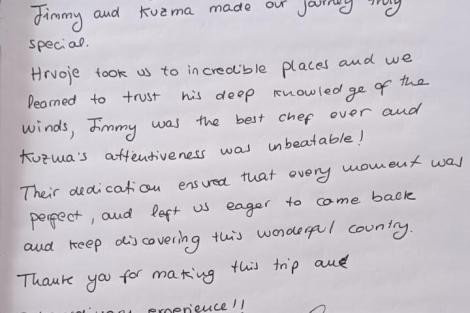 Jimmy and Kuzma made our journey truly
special.
Hrvoje took us to incredible places and we
learned to trust his deep knowledge of the
winds, Jimmy was the best chef ever and
Kuzma's attentiveness was unbeatable!
Their dedication ensured that every moment was
perfect, and left us eager to come back
and keep discovering this wonderful country.
Thank you for making this trip and
experience!!